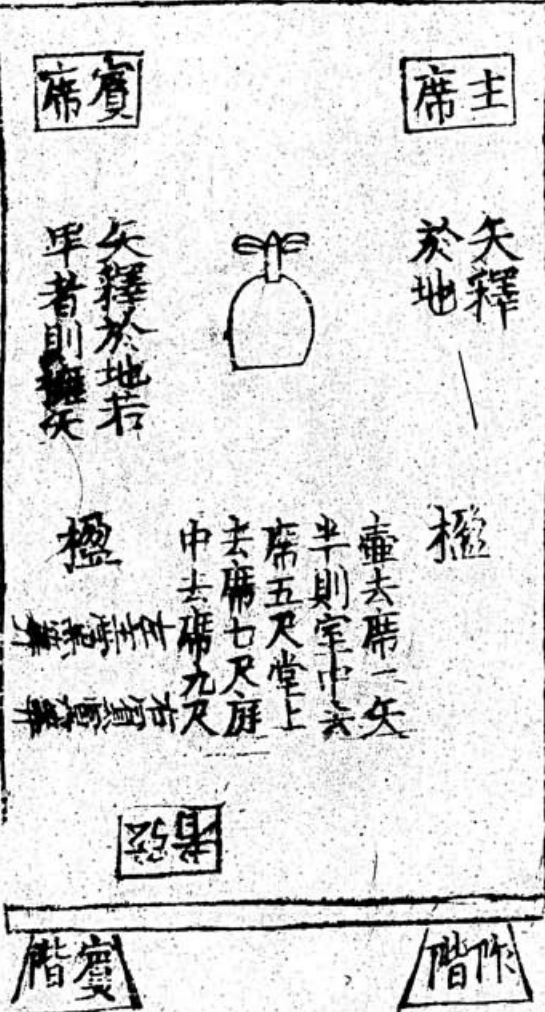 主席
賓席
矢釋
於地
矢釋於地若
卑者則擁矢
楹
壺去席二矢
半則室中去
席五尺堂上
去席七尺庭
中去席九尺
楹
阼階
賓階